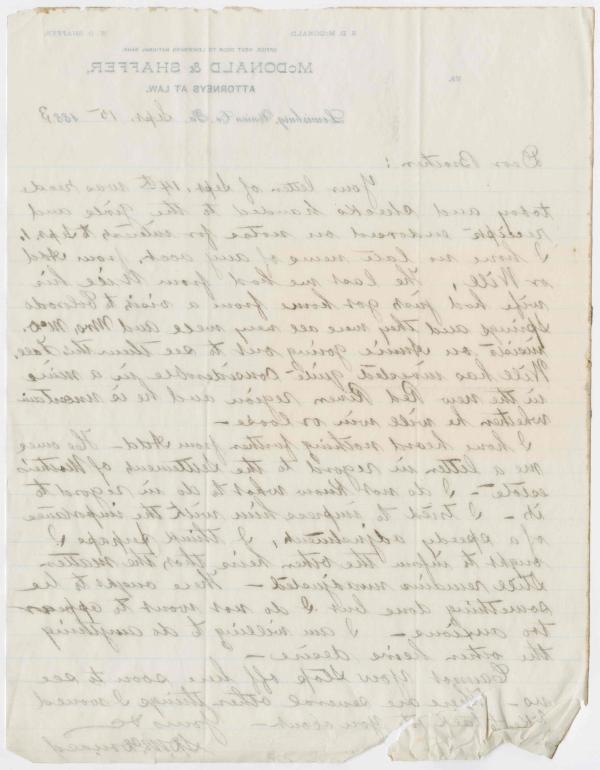 S. D. McDONALD W. O. SHAFFER
OFFICE NEXT DOOR TO LEWISBURG NATIONAL BANK.
McDONALD & SHAFFER,
ATTORNEYS AT LAW.
Lewisburg, Union Co. Pa. Sept. 15 1883
Dear Brother:
Your letter of Sept. 14th was recd
today and checks handed to the girls and
receipt endorsed on notes for interest to Sept 1.
I have no late news of any acct. from Add
or Will, The last we had from Will his
wife had just got home from a visit to Colorado
Springs and they were all very well and Mrs. McD.
insists on Annie going out to see them this Fall.
Will has invested quite considerable in a mine
in the new Red River region and he is uncertain
whether he will win or loose –
I have heard nothing further from Add – He owes
me a letter in regard to the settlement of Mother's
estate – I do not know what to do in regard to
it – I tried to impress him with the importance
of a speedy adjustment, I think perhaps I
ought to inform the other heirs, that the matter
still remains unadjusted – There ought to be
something done but I do not want to appear
too anxious – I am willing to do anything
the other heirs desire –
Cannot you stop off here soon to see
us – There are several other things I would
like to talk to you about –
Yours &c
McDonald